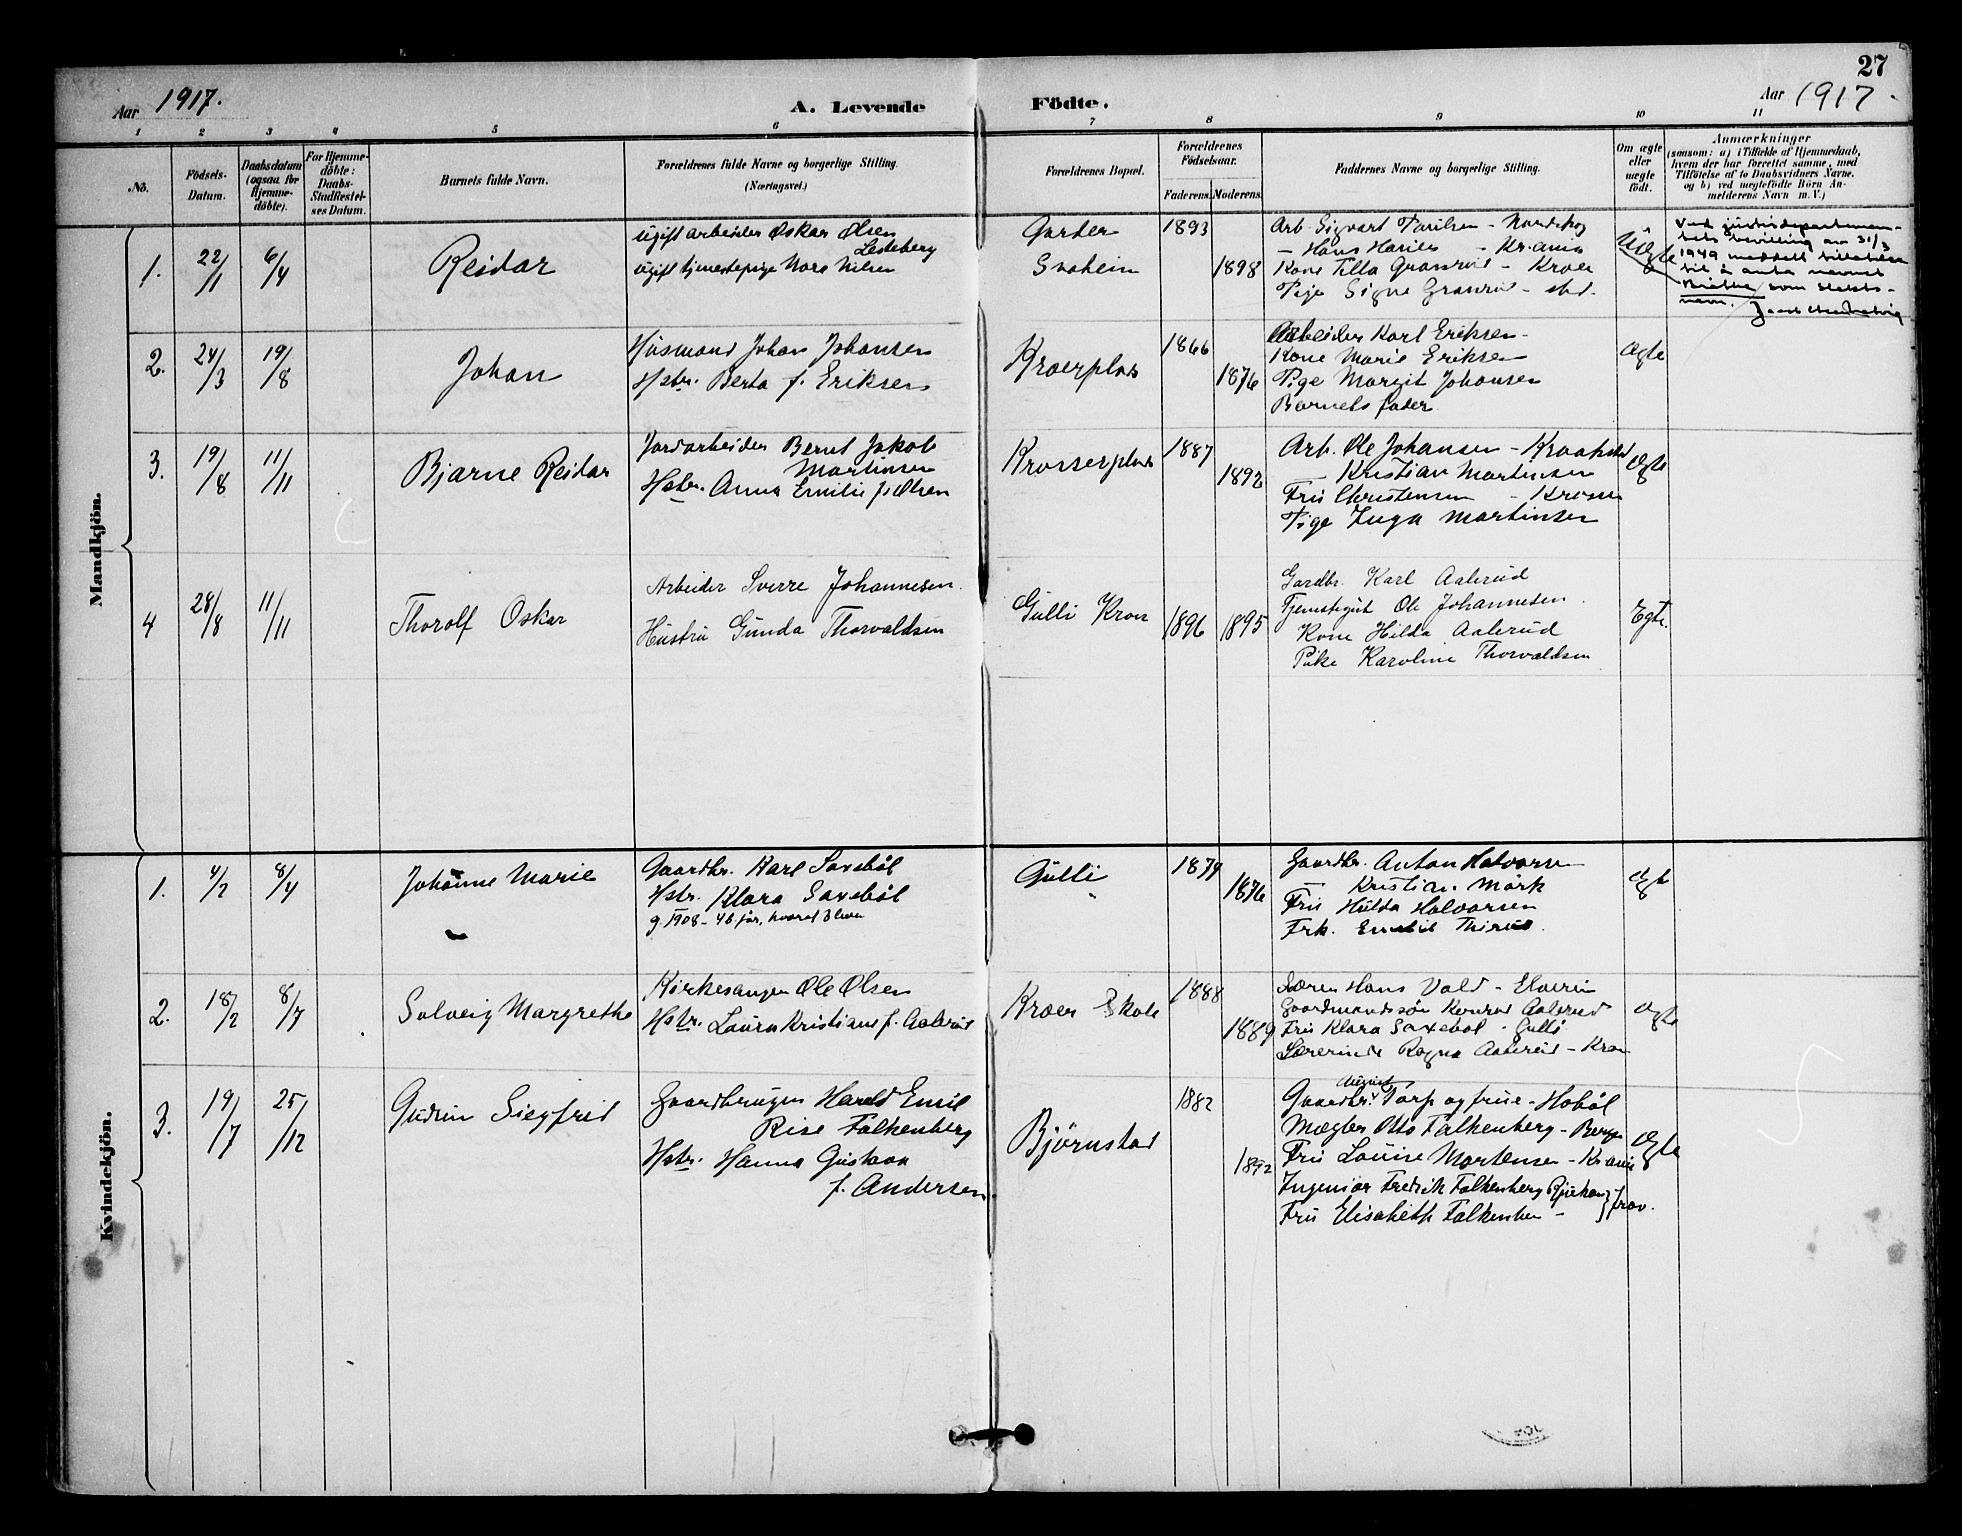 27
Aar 1917.
A. Levende Födte.
Aar 1917.
1 2 3 4 5 6 7 8 9 10 11
No.
Födsels-Datum.
Daabsdatum (ogsaa for Hjemme-döbte).
For Hjemme-döbte: Daabs-Stadfæstel-ses Datum.
Barnets fulde Navn.
Forældrenes fulde Navne og borgerlige Stilling. (Næringsvei.)
Forældrenes Bopæl.
Forældrenes Födselsaar.
Faderens. Moderens.
Faddernes Navne og borgerlige Stilling.
Om ægte eller uægte födt.
Anmærkninger
(saasom: a) i Tilfælde af Hjemmedaab,
hvem der har forrettet samme, med
Tilföielse af to Daabsvidners Navne,
og b) ved uægtefödte Börn An-
melderens Navn m. V.)
Mandkjön.
1. 22/1 6/4 Reidar
Ugift arbeider Oskar Olsen
Lesteberg
Ugift tjenestepige Nora Nilsen
Garder
1893 1898
Arb. Sigvart Paulsen - Nordskog
- Hans Hansen - Kr.ania
Kone Tilla Granrud - Kroer
Pige Signe Granrud - sted.
Uægte
Ved justisdepartemen-
tets bevilling av 31/3
1949 meddelt tillatelse
til å anta navnet
som slekts-
navn.
2. 24/3 19/8 Johan
Husmand Johan Johansen
Hstr. Berta f. Eriksen
Kroerplas
1866 1876
Arbeider Karl Eriksen
Kone Marie Eriksen
Pige Margit Johansen
Barnets fader
Ægte
3. 19/8 11/11 Bjarne Reidar
Jordarbeider Bernt Jakob
Martinsen
Hstr. Anna Emilie f. Olsen
Krosserplas
1887 1892
Arb. Ole Johansen -
Kristian Martinsen
Fru Christensen - Kroer
Pige Inga Martinsen
Ægte
4 28/8 11/11 Thorolf Oskar
Arbeider Sverre Johannesen.
Hustru Gunda Thorvaldsen
Gulli Kroer
1896 1895
Gardbr. Karl Aalerud
Tjenestegut Ole Johannesen
Kone Hilda Aalerud
Pike Karoline Thorvaldsen
Egte.
Kvindekjön.
1. 4/2 8/4 Johanne Marie
Gaardbr. Karl Saxebøl
Hstr. Klara Saxebøl
g. 1908 - 4 b. før, hvoraf 3 lever
Gulli
1879 1876
Gaardbr. Anton Halvorsen
- Kristian Mørk
Fru Hulda Halvorsen
Frk. Emilie Thirud.
Ægte
2. 18/2 8/7 Solveig Margrethe
Kirkesanger Ole Olsen
Hstr. Laura Kristiane f. Aalerud
Kroer Skole
1888 1889
Lærer Hans Vold - Elverum
Gaardmandssøn Konrad Aalerud
Fru Klara Saxebøl - Gulli
Lærerinde Ragna Aalerud - Kroer
Ægte
3. 19/7 25/12 Gudrun Siegfrid
Gaardbruger Harald Emil
Rise Falkenberg
Hstr. Hanna Gustava
f. Andersen.
Bjørnstad
1882 1892
Gaardbr. August Torp og frue - Hobøl
Mægler Otto Falkenberg - Bergen
Fru Louise Mortensen - Kr.ania
Ingeniør Fredrik Falkenberg Rjukan
Fru Elisabeth Falkenberg -
} frav.
Ægte